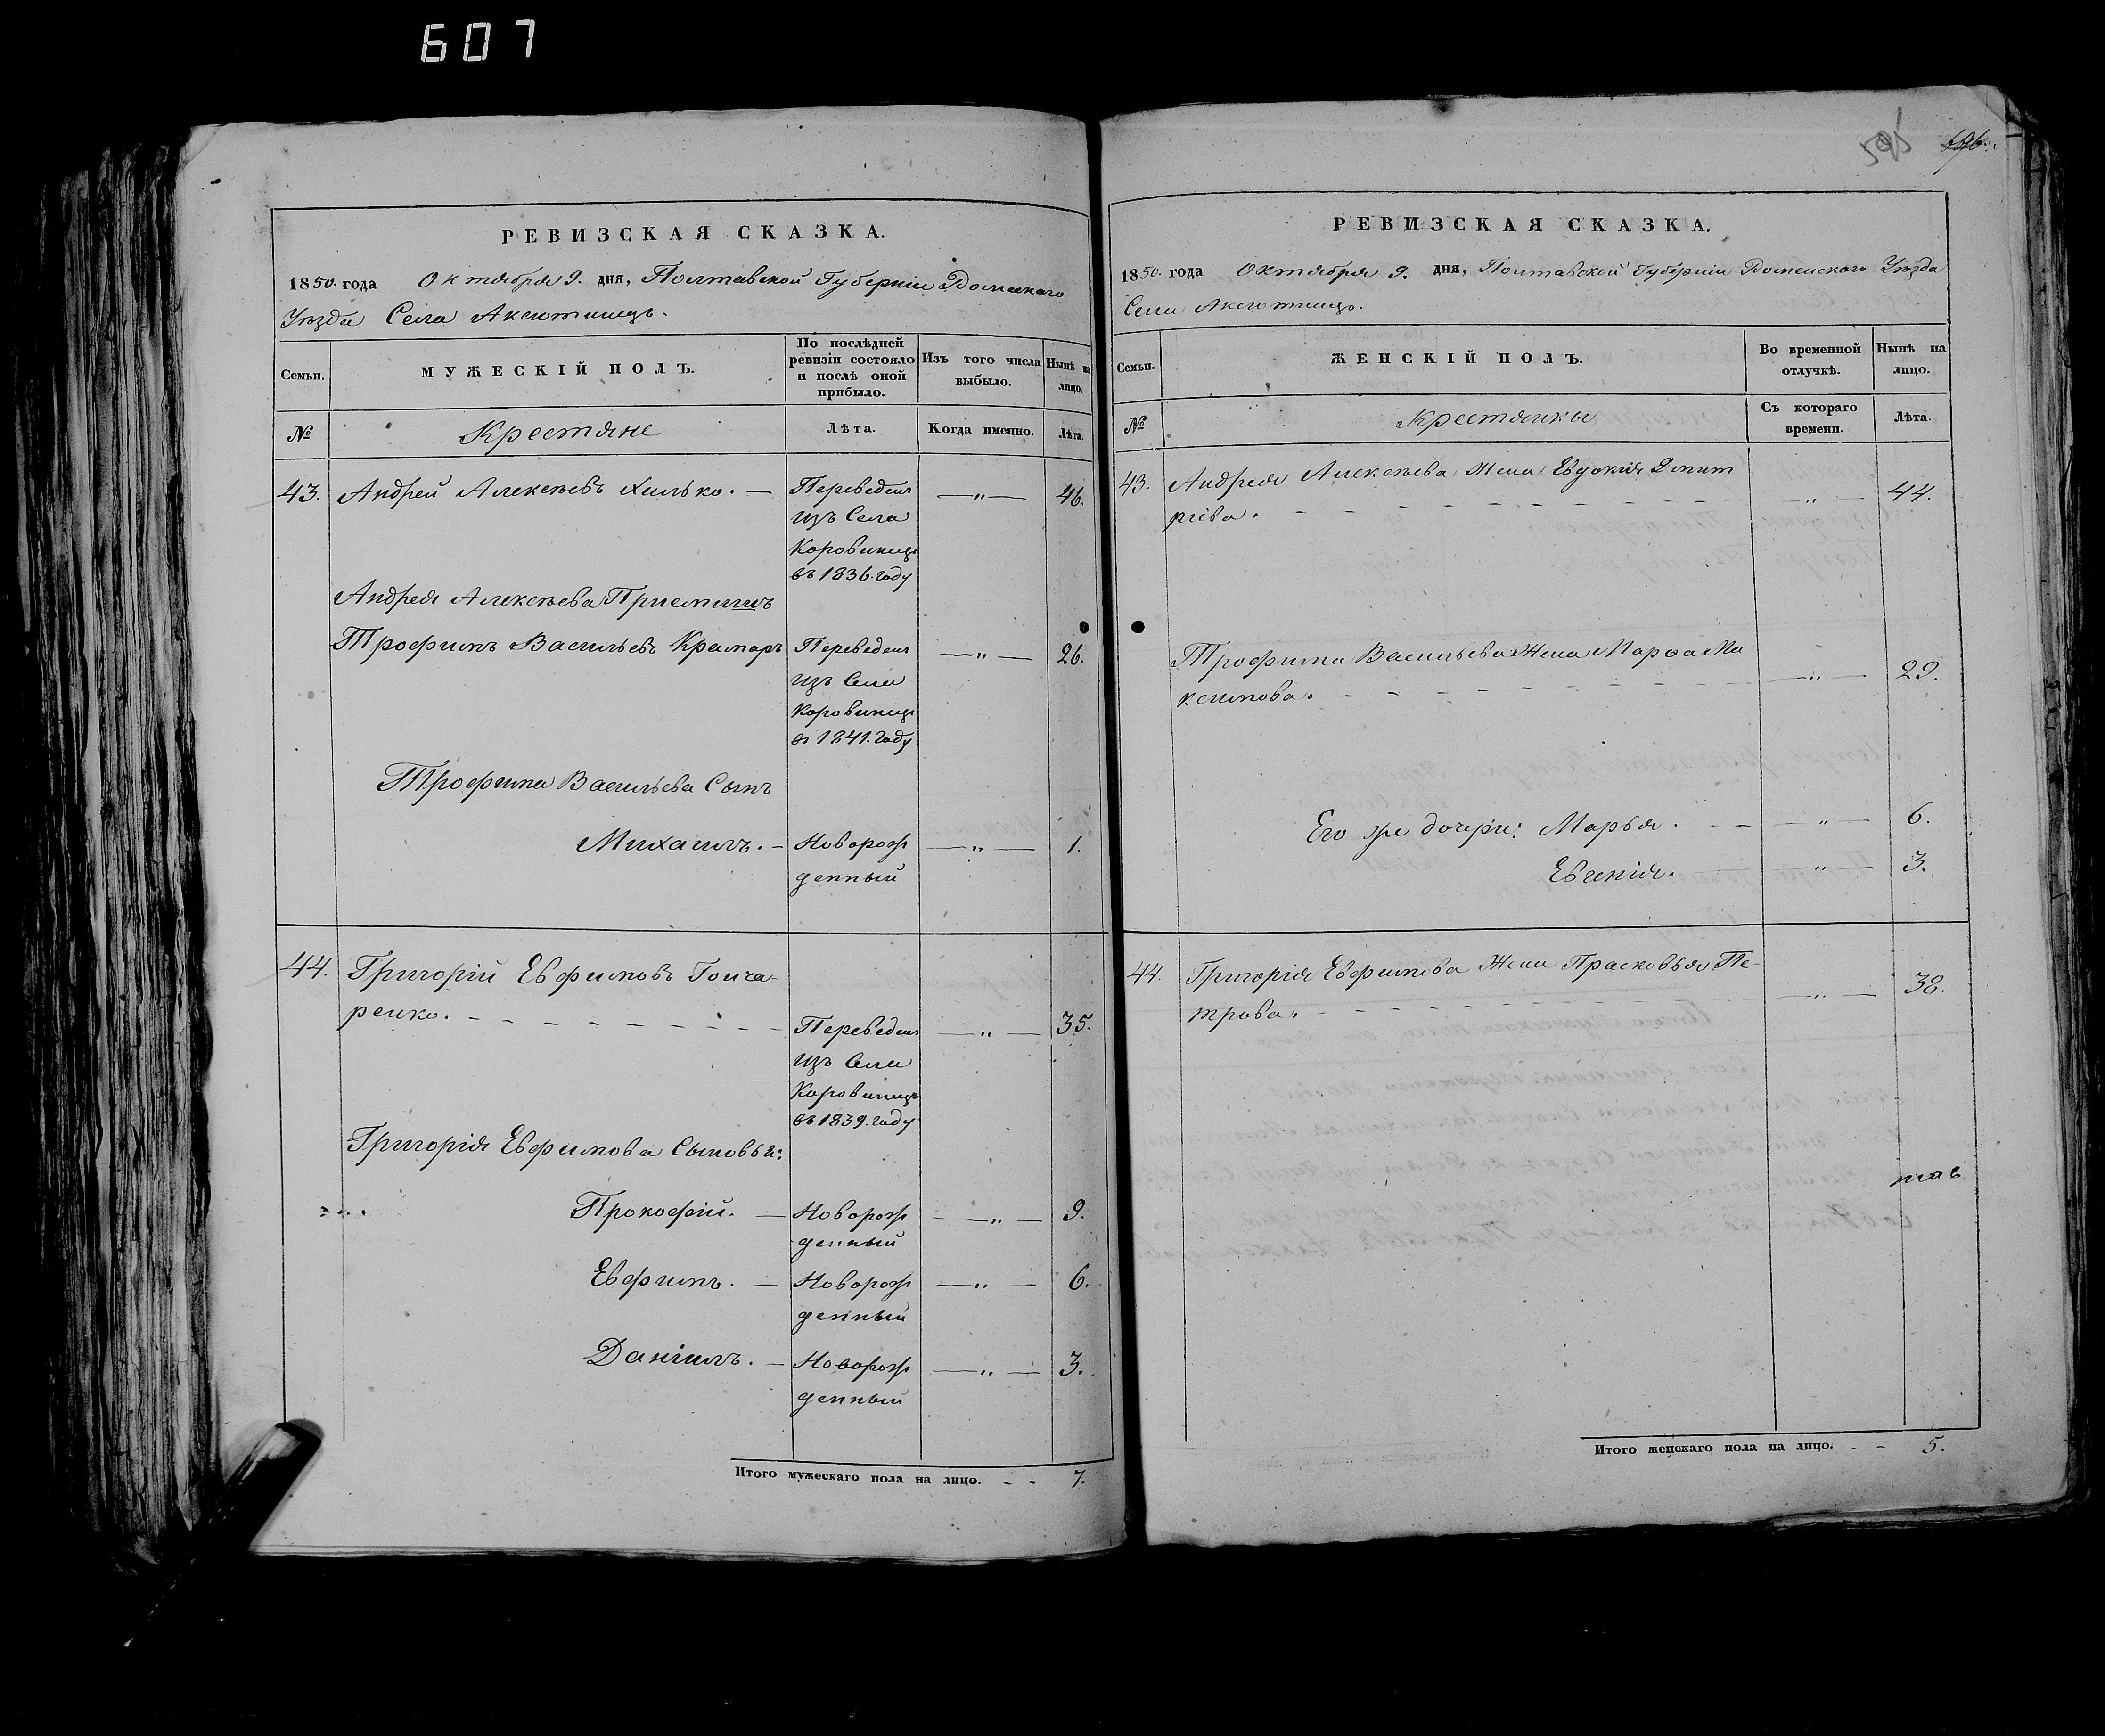 607
595 596.
РЕВИЗСКАЯ СКАЗКА.
1850. года Октября 9. дня, Полтавской Губерніи Роменскаго
Уѣзда Села Аксютинцъ.
Семьи.
МУЖЕСКІЙ ПОЛЪ.
По послѣдней
ревизіи состояло
и послѣ оной
прибыло.
Изъ того числа
выбыло.
Нынѣ на
лицо.
№
Крестяне
Лѣта.
Когда именно.
Лѣта.
43. Андрей Алексѣевъ Хилько. — Переведенъ —„— 46.
изъ Села
Коровинецъ
въ 1836. году
Андрея Алексѣева Приемышъ
Трофимъ Васильевъ Крамаръ Переведенъ —„— 26.
изъ Села
Коровинецъ
въ 1841. году
Трофима Васильева Сынъ
Михаилъ. — Новорож —„— 1.
денный
44. Григорій Евфимовъ Гонча-
ренко. - - - - - - - - Переведенъ —„— 35.
изъ Села
Коровинецъ
въ 1839. году
Григорія Евфимова Сыновья:
Прокофій. — Новорож —„— 9.
денный
Евфимъ. — Новорож —„— 6.
денный
Даніилъ. — Новорож —„— 3.
денный
Итого мужескаго пола на лицо. - - 7.
РЕВИЗСКАЯ СКАЗКА.
1850. года Октября 9. дня, Полтавской Губерніи Роменскаго Уѣзда
Села Аксютинцъ.
Семьи.
ЖЕНСКІЙ ПОЛЪ.
Во временной
отлучкѣ.
Нынѣ на
лицо.
№
Крестянки
Съ котораго
времени.
Лѣта.
43. Андрея Алексѣева Жена Евдокія Дмит
ріева. - - - - - - - - —„— 44.
Трофима Васильева Жена Марѳа Ма
ксимова. - - - - - - - - —„— 29.
Его же дочери: Марья. - - —„— 6.
Евгенія. — —„— 3.
44. Григорія Евфимова Жена Прасковья Пе-
трова. - - - - - - - - —„— 38.
Итого женскаго пола на лицо. - - 5.